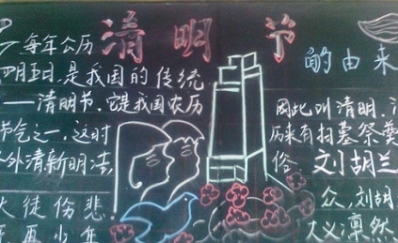 清明节
的由来
每年公历
四月五日,是我国的传统
——清明节,它是我国农历
节气之一,这时
外清新明洁,
大徒伤悲
因此叫清明,
历来有扫墓祭奠
俗
刘胡兰
众,刘胡
大义凛然